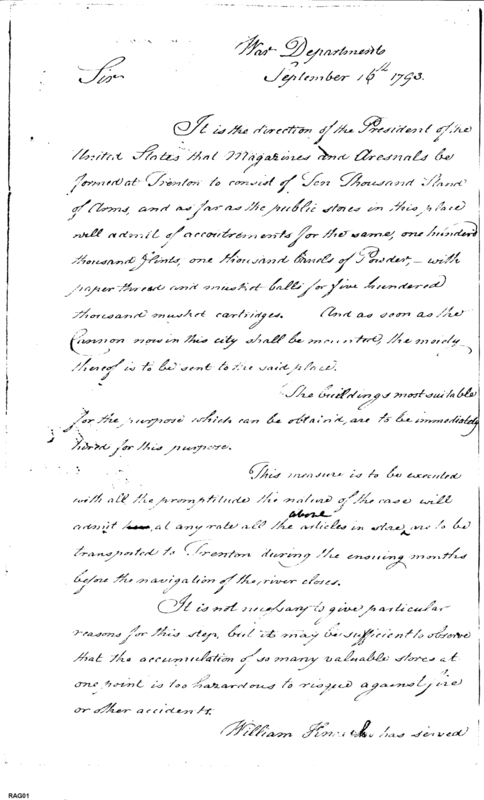 War Department
Sir
September 16th 1793.
It is the direction of the President of the
United States that Magazines and Aresnals be
formed at Trenton to consist of Ten Thousand Stand
of Arms, and as far as the public stores in this place
will admit of accoutrements for the same, one hundred
thousand flints, one thousand barrels of Powder, – with
paper thread and musket balls for five hundered
thousand musket cartridges. And as soon as the
Cannon now in this city shall be mounted, the moiety
thereof is to be sent to the said place.
The buildings most suitable
for the purpose which can be obtain'd, are to be immediately
hired for this purpose.
This measure is to be executed
with all the promptitude the nature of the case will
above
admit at any rate all the articles in store, are to be
transported to Trenton during the ensuing months
before the navigation of the river closes.
It is not necessary to give particular
reasons for this step, but it may be sufficient to observe
that the accumulation of so many valuable stores at
one point is too hazardous to risque against fire
or other accidents.
William has served
RAG01